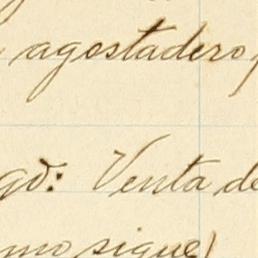 agostadero,
go: Venta de
mo sigue)